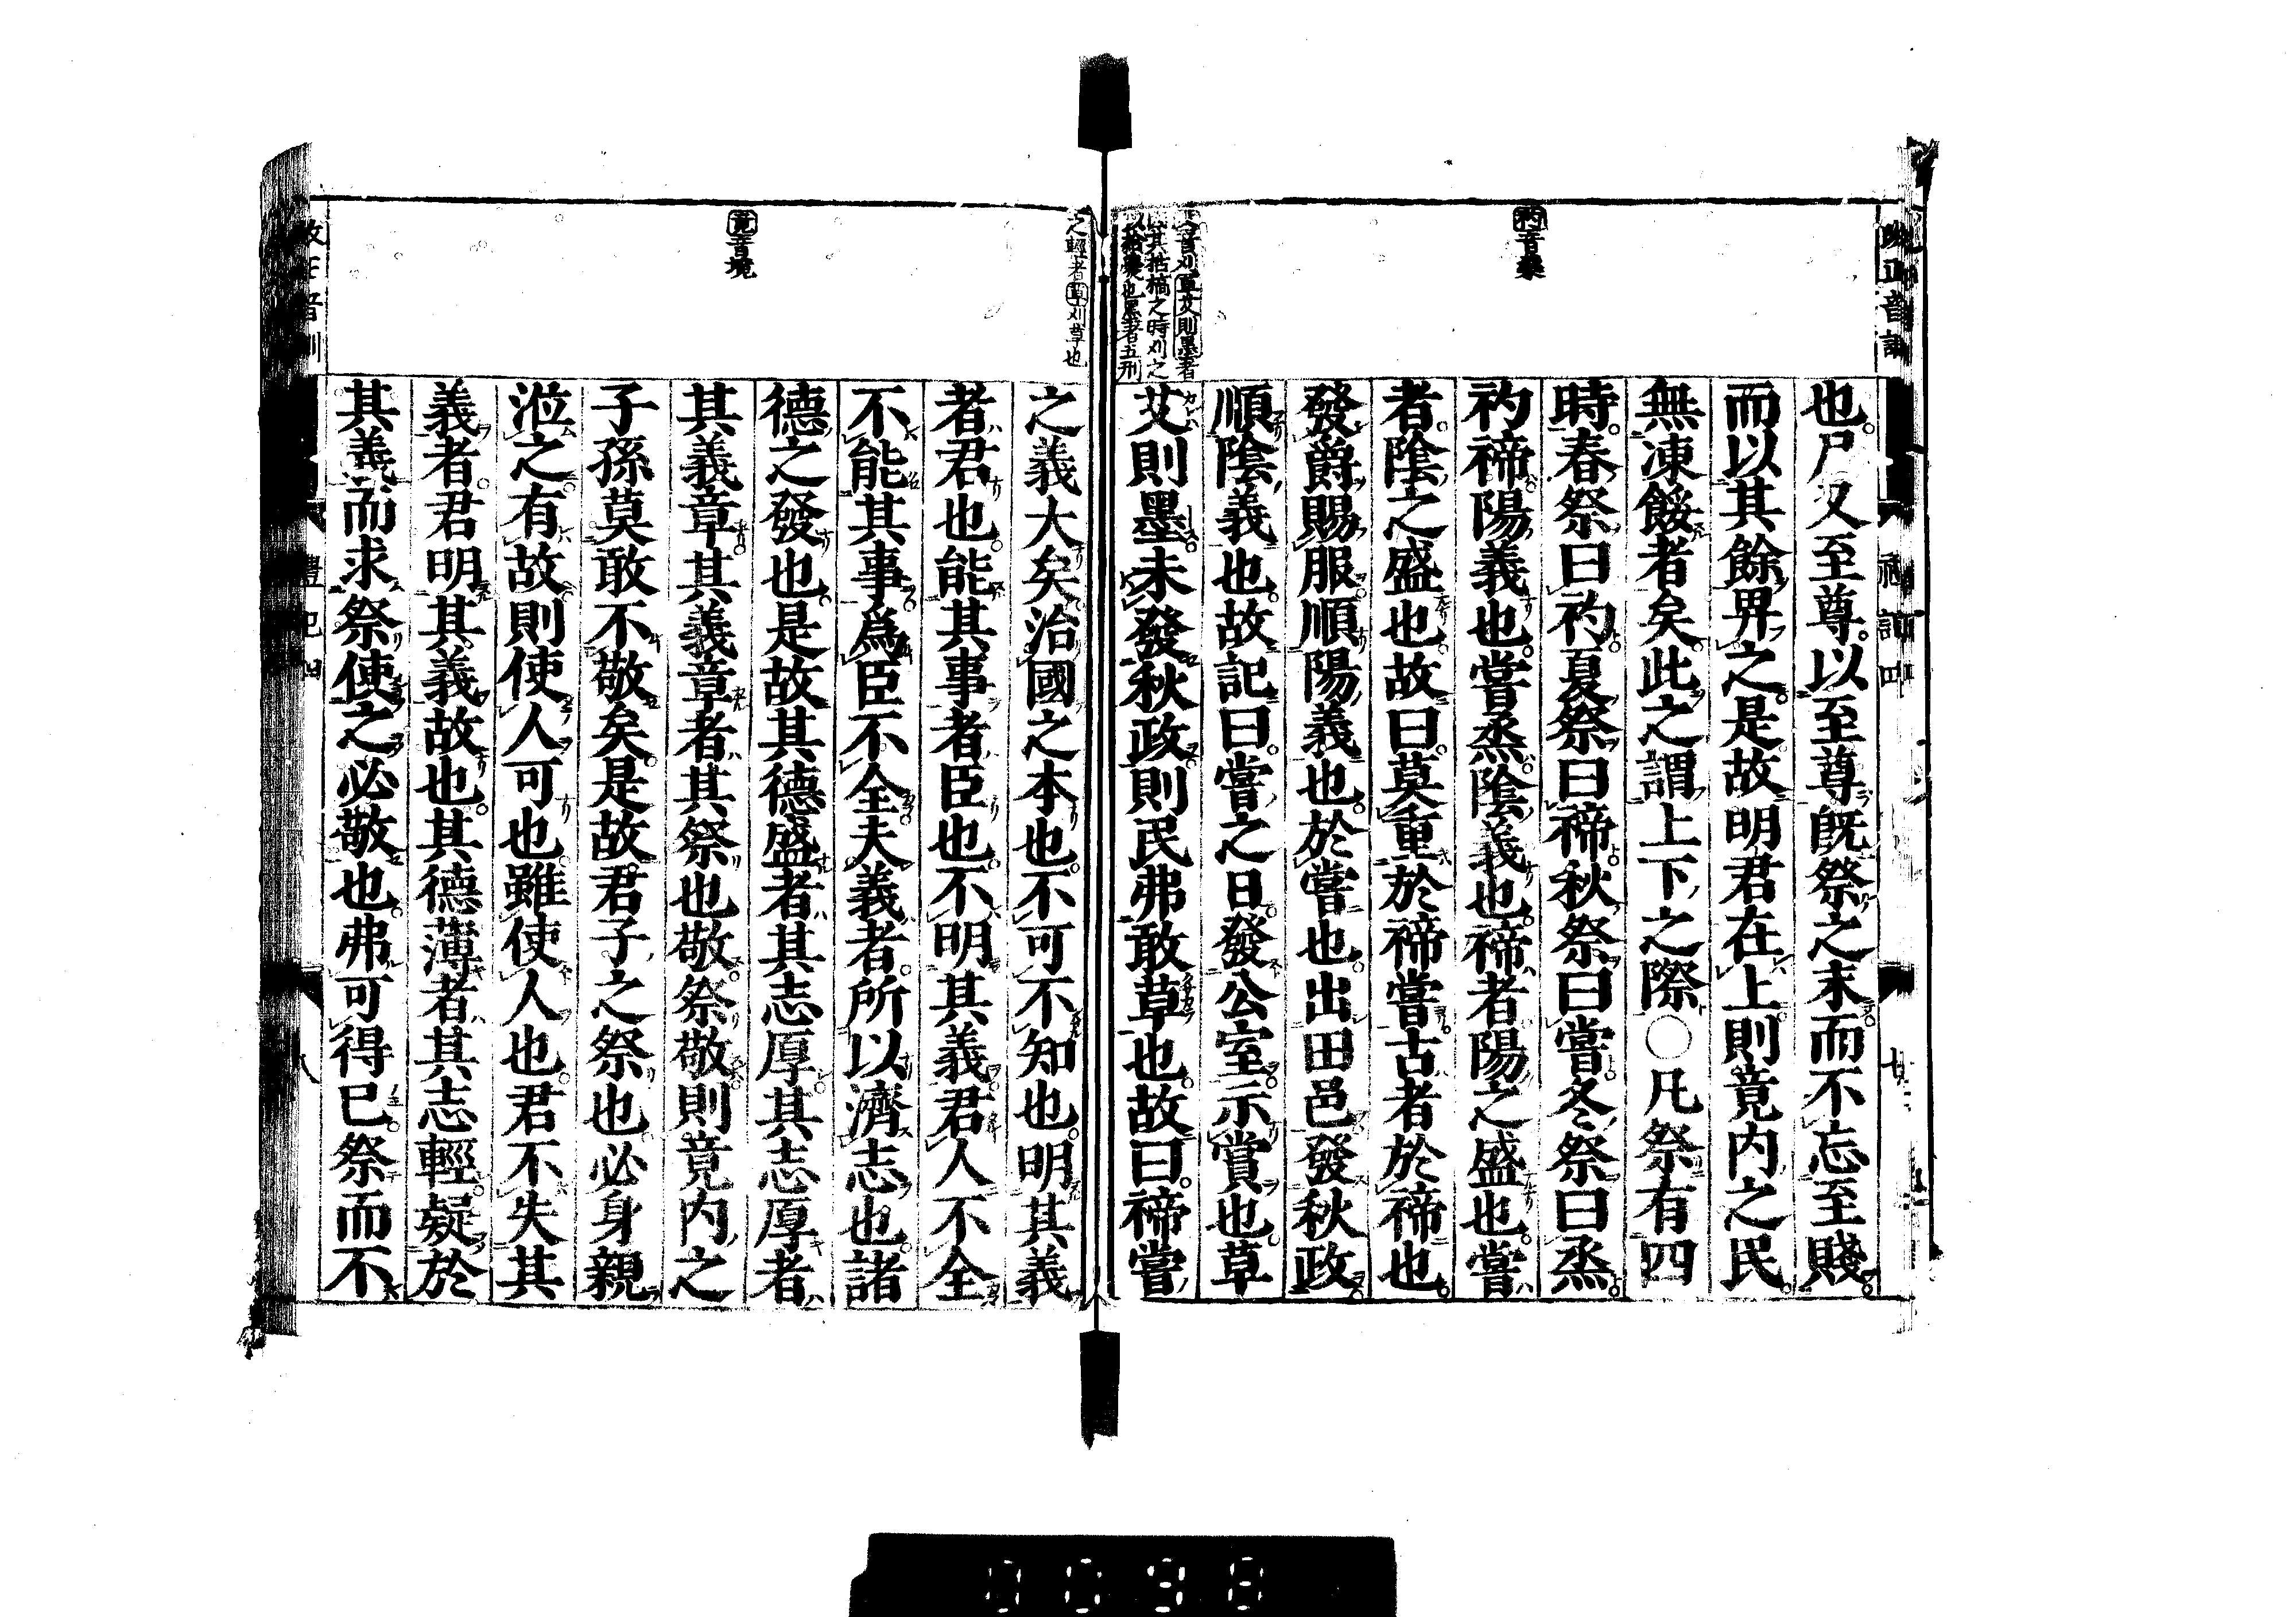 礿音藥
艾音刈草艾則墨者
以其枯槁之時刈之
也墨者五刑
也尸又至尊以至尊旣祭之末而不忘至賤
而以其餘畀之是故明君在上則竟内之民
無凍餒者矣此之謂上下之際○凡祭有四
時春祭曰礿夏祭曰禘秋祭曰嘗冬祭曰烝
礿禘陽義也嘗烝陰義也禘者陽之盛也嘗
者陰之盛也故曰莫重於禘嘗古者於禘也
發爵賜服順陽義也於嘗也出田邑發秋政
順陰義也故記曰嘗之日發公室示賞也草
艾則墨未發秋政則民弗敢草也故曰禘嘗
之輕者草刈草也
竟音境
之義大矣治國之本也不可不知也明其義
者君也能其事者臣也不明其義君人不全
不能其事爲臣不全夫義者所以濟志也諸
德之發也是故其德盛者其志厚其志厚者
其義章其義章者其祭也敬祭敬則竟内之
子孫莫敢不敬矣是故君子之祭也必身親
涖之有故則使人可也雖使人也君不失其
義者君明其義故也其德薄者其志輕疑於
其義而求祭使之必敬也弗可得已祭而不